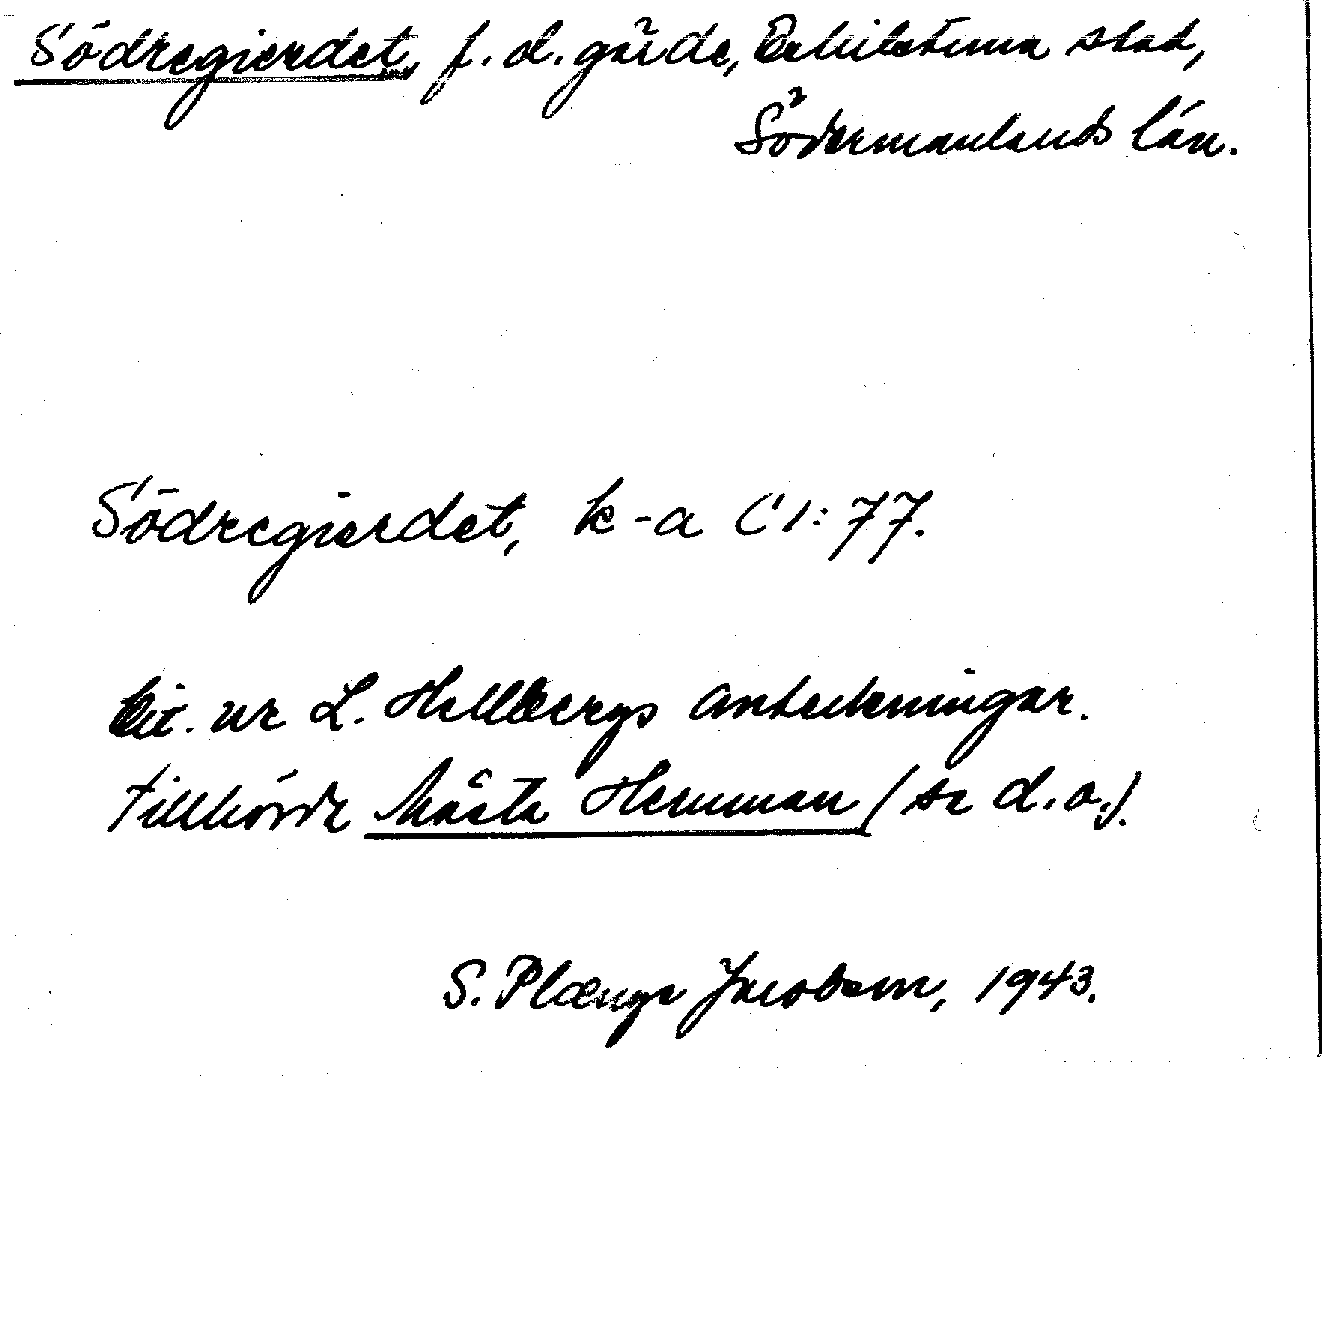 Södregierdet, f. d. gärde, Eskilstuna stad,
Södermanlands län.
Södregierdet, k-a C 1: 77.
Cit. ur L. Hellbergs anteckningar.
Tillhörde Måsta Hemman (se d.o.).
S. Plænge Jacobson, 1943.